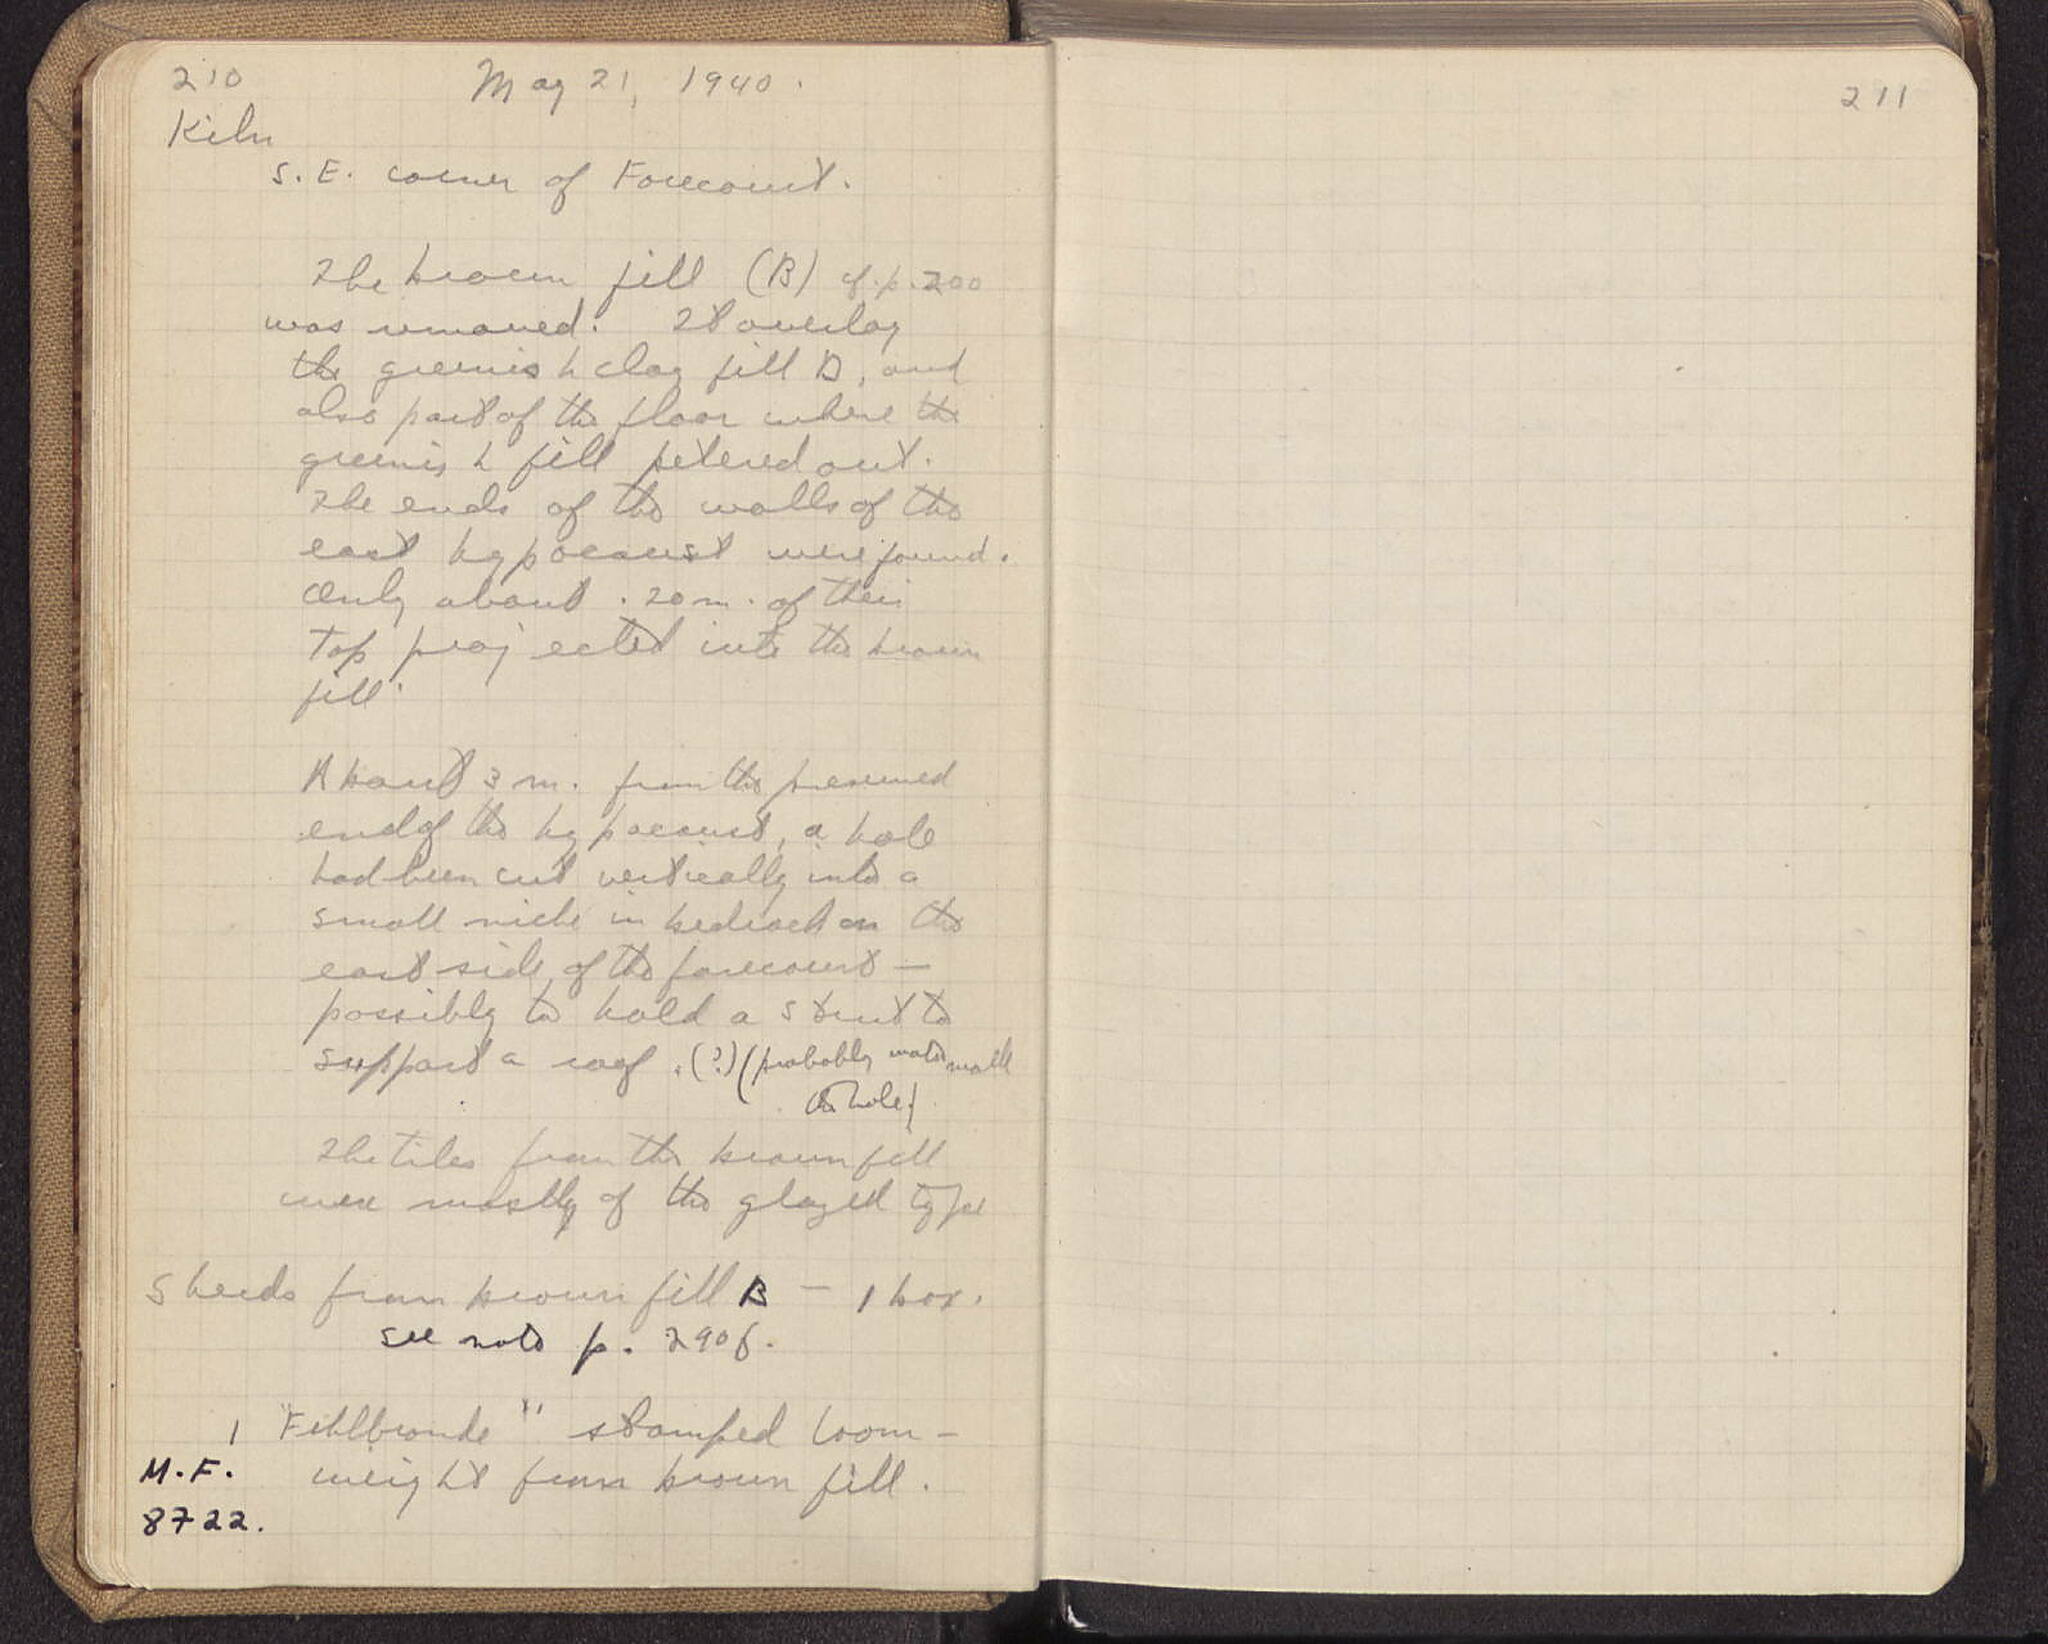 210
May 21, 1940.
Kiln
S.E. corner of Forecourt.
The brown fill (B) cf. p. 200
was removed. It overlay
the greenish clay fill D, and
also part of the floor where the
greenish fill petered out.
The ends of the walls of the
east hypocaust were found.
Only about .20 m. of their
top projected into the brown
fill.
About 3 m. from the presumed
end of the hypocaust, a hole
had been cut vertically into a
small niche in bedrock on the
east side of the forecourt —
possibly to hold a strut to
support a roof. (?) (probably small
hole)
The tiles from the brown fill
were mostly of the glazed type
Sherds from brown fill B — 1 box.
see note p. 290f.
1 "Fehlbrande" stamped loom-
M.F. weight from brown fill.
8722.
211